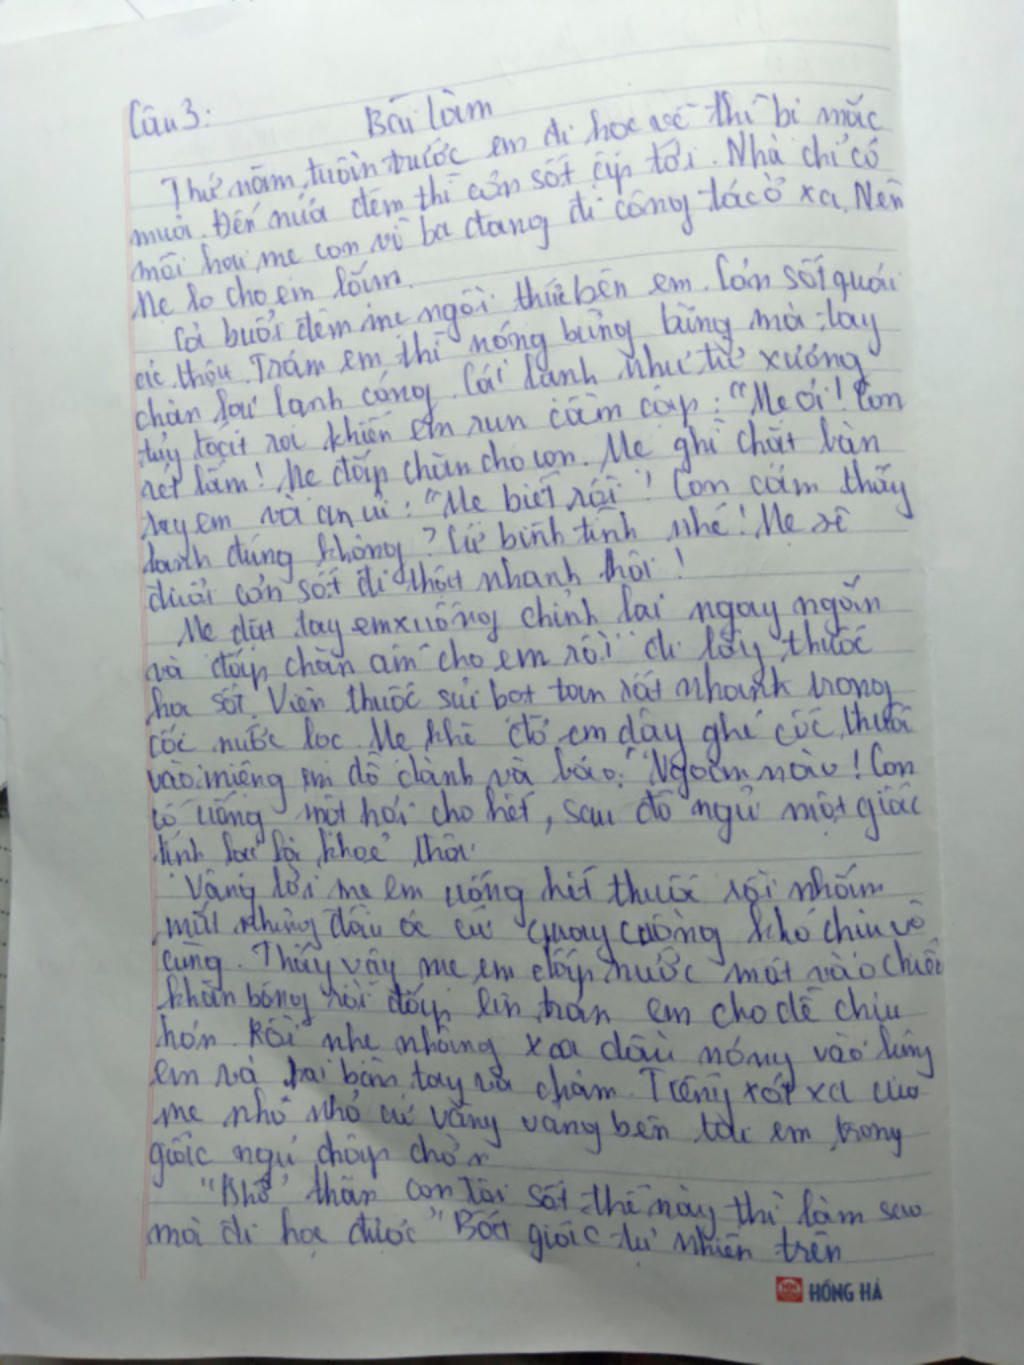 Câu 3:
Bài làm
Thứ năm, tuần trước em đi học về thì bị mắc
mưa. Đến nửa đêm thì cơn sốt ập tới. Nhà chỉ có
mỗi hai mẹ con vì ba đang đi công tác ở xa. Nên
Mẹ lo cho em lắm.
Cả buổi đêm mẹ ngồi thức bên em. Cơn sốt quái
ác thật. Trán em thì nóng bừng bừng mà tay
chân lại lạnh cóng. Cái lạnh như từ xương
tủy toát ra khiến em run cầm cập: "Mẹ ơi! Con
rét lắm! Mẹ đắp chăn cho con. Mẹ ghì chặt bàn
tay em và an ủi: "Mẹ biết rồi! Con cảm thấy
lạnh đúng không? Cứ bình tĩnh nhé! Mẹ sẽ
đuổi cơn sốt đi thật nhanh thôi!
Mẹ đặt tay em xuống chỉnh lại ngay ngắn
và đắp chăn ấm cho em rồi đi lấy thuốc
hạ sốt. Viên thuốc sủi bọt tan rất nhanh trong
cốc nước lọc. Mẹ khẽ đỡ em dậy ghé cốc thuốc
vào miệng em dỗ dành và bảo: "Ngoan nào! Con
cố uống một hơi cho hết, sau đó ngủ một giấc
tỉnh lại là khoẻ thôi.
Vâng lời mẹ em uống hết thuốc rồi nhắm
mắt nhưng đầu óc cứ quay cuồng khó chịu vô
cùng. Thấy vậy mẹ em đắp nước mát vào chiếc
khăn bông rồi đắp lên trán em cho dễ chịu
hơn. Rồi nhẹ nhàng xoa dầu nóng vào lưng
em và hai bàn tay và chăm. Tiếng xót xa của
mẹ nho nhỏ cứ văng vẳng bên tai em trong
giấc ngủ chập chờn
"Khổ thân con tôi sốt thế này thì làm sao
mà đi học được" Bất giác tự nhiên trên
HỒNG HÀ